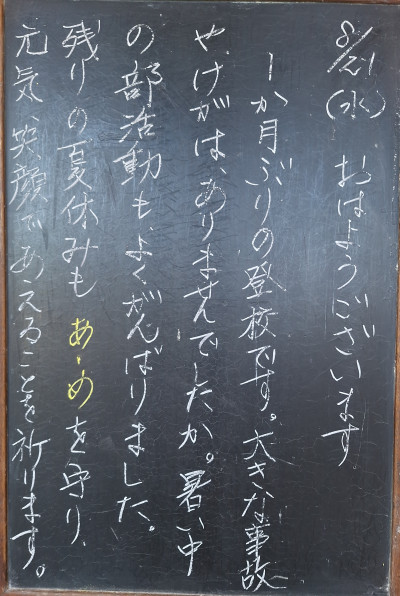 8/21(水) おはようございます。
1か月ぶりの登校です。大きな事故
や、けがは、ありませんでしたか。暑い中
の部活動も、よくがんばりました。
残りの夏休みも あ・め を守り、
元気、笑顔であえることを祈ります。